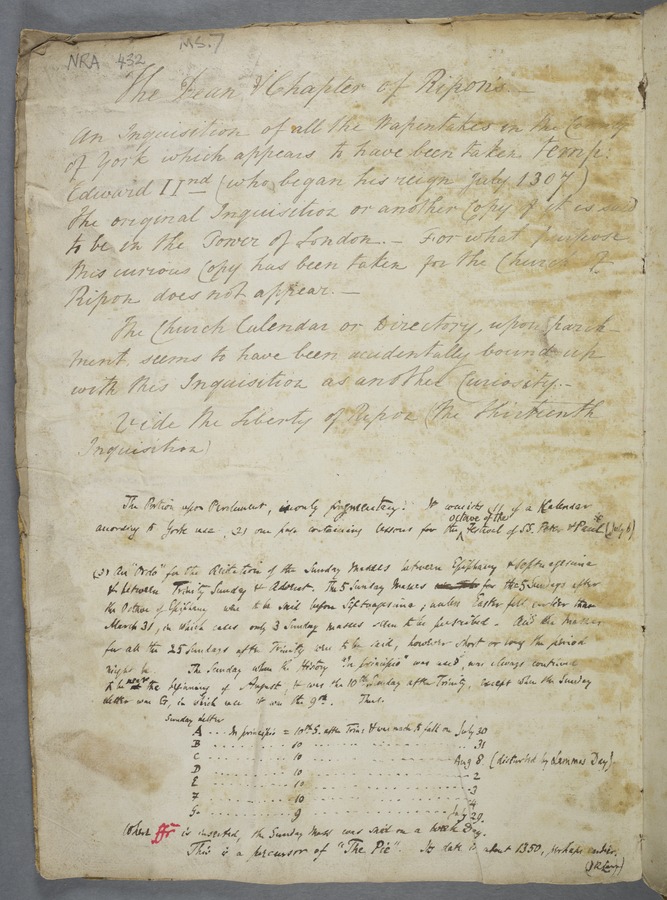 NRA 432 MS.7
The Dean & Chapter of Ripon's —
An Inquisition of all the Wapentakes in the County
of York which appears to have been taken Temp:
Edward IInd (who began his reign July 1307)
The original Inquisition or another Copy of it is said
to be in the Tower of London. — For what purpose
this curious Copy has been taken for the Church of
Ripon does not appear. —
The Church Calendar or Directory, upon parch-
ment, seems to have been accidentally bound up
with this Inquisition as another Curiosity. —
Vide the Liberty of Ripon (the thirteenth
Inquisition)
The Portion upon Parchment, is only fragmentary. It consists (1) of a Kalendar
according to York use, (2) one page containing lessons for the octave of the Festival of SS. Peter & Paul (July 6)
(3) An "Ordo" for the Recitation of the Sunday Masses between Epiphany & Septuagesima
& between Trinity Sunday & Advent. The 5 Sunday Masses for the 5 Sundays after
the Octave of Epiphany were to be said before Septuagesima, unless Easter fell earlier than
March 31, in which case only 3 Sunday masses were to be
for all the 25 Sundays after Trinity were to be said, however short or long the period
might be. The Sunday when the History "In principio" was used, was always
to be near the beginning of August, & was the 10th Sunday after Trinity, except when the Sunday
letter was G, in which case it was the 9th. Thus.
Sunday letter
A ... In principio = 10th S. after Trin: & was made to fall on July 30
B ... 10 ... 31
C ... 10 ... Aug 8 (disturbed by Lammas Day)
D ... 10 ... 2
E ... 10 ... 3
F ... 10 ... 4
G ... 9 ... July 29.
Where ffr is inserted, the Sunday Mass was said on a Week Day.
This is a precursor of "The Pie". Its date is about 1350, perhaps earlier.